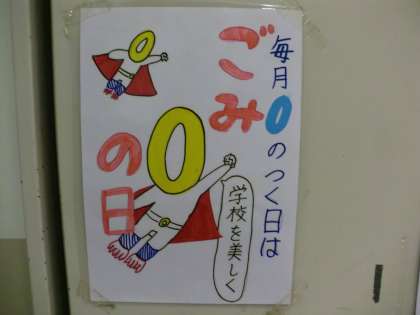 毎月0のつく日は
ごみ
の日
学校を美しく